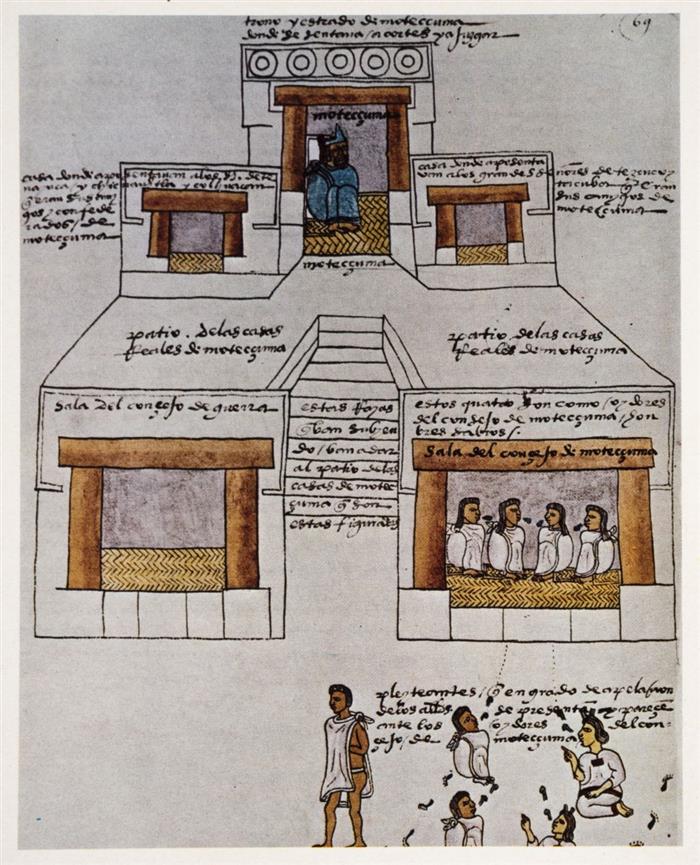 69
trono y estrado de motecçuma
donde se sentava a cortes y a juzgar
motecçuma
motecçuma
casa donde aposentavan a los s.s de te
nayuca y chicunauhtla y colhuacan
q̃ eran sus ami
gos y confede
rados / de
motecçuma
casa donde aposenta
van a los grandes señores de tezcuco y
tacuba q̃ eran
sus amigos de
motecçuma
patio. de las casas
Reales de motecçuma
patio. de las casas
Reales de motecçuma
sala del consejo de guerra
estas Rayas
q̃ van subien
do / van a dar
al patio de las
casas de motec
çuma q̃ son
estas figuradas
estos quatro son como / oydores
del consejo de motecçuma / hon
bres sabios /.
sala del consejo de motecçuma
pleyteantes / q̃ en grado de apelaçion
de los alldes se presentan y pareçen
ante los oydores del con=
sejo / de motecçuma